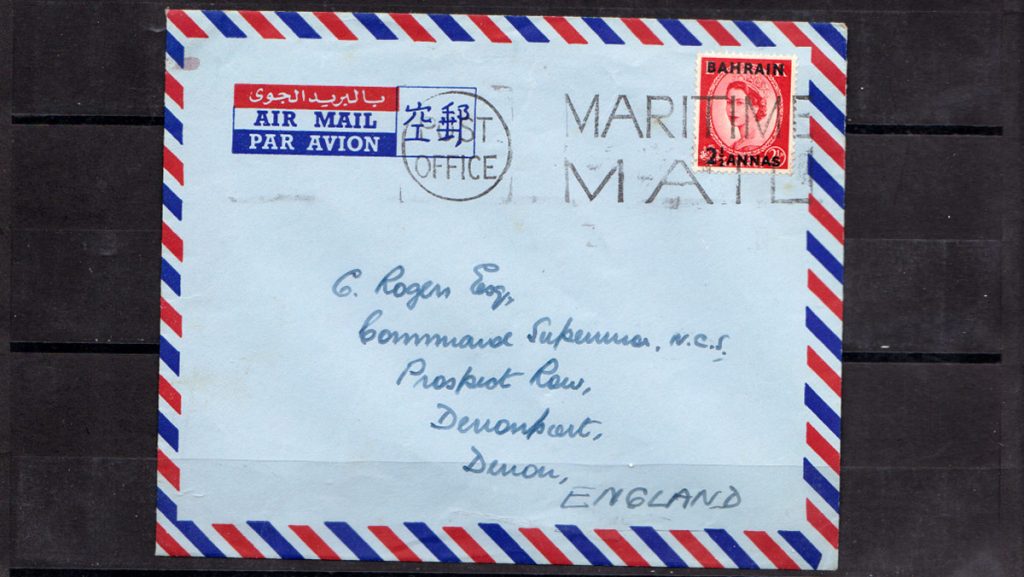 بالبريد الجوى
AIR MAIL
PAR AVION
空郵
POST
OFFICE
MARITIME
MAIL
BAHRAIN
2½ ANNAS
2½
C. Rogers Esq,
Command Supervisor, N.C.S.
Prospect Row,
Devonport,
Devon,
ENGLAND